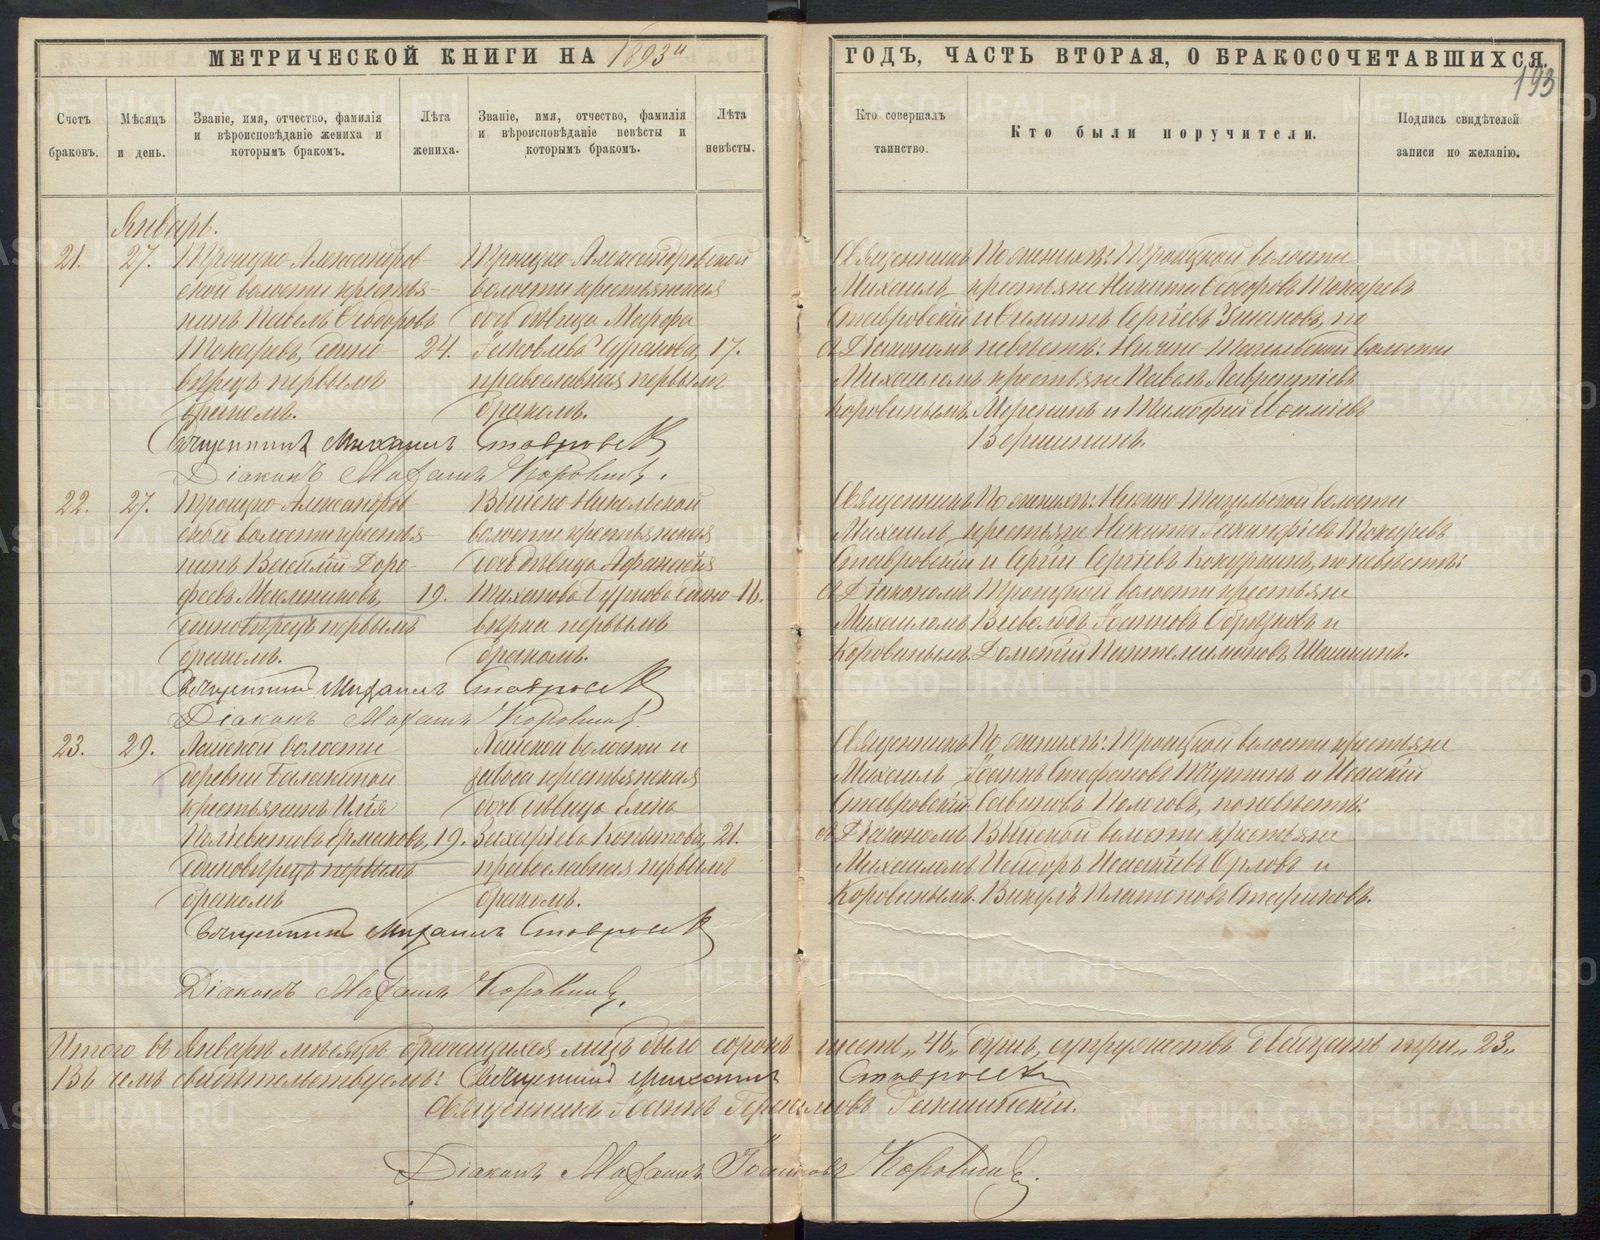 МЕТРИЧЕСКОЙ КНИГИ НА 1893"
ГОДЪ, ЧАСТЬ ВТОРАЯ, О БРАКОСОЧЕТАВШИХСЯ.
193
Счетъ
браковъ.
Мѣсяцъ
и день.
Званіе, имя, отчество, фамилія
и вѣроисповѣданіе жениха и
которымъ бракомъ.
Лѣта
жениха.
Званіе, имя, отчество, фамилія
и вѣроисповѣданіе невѣсты и
которымъ бракомъ.
Лѣта
невѣсты.
Кто совершалъ
таинство.
Кто были поручители.
Подпись свидѣтелей
записи по желанію.
Январь.
21.
27.
Троицко-Александров-
ской волости крестья-
нинъ Павелъ Ѳеодоровъ
Токаревъ, едино-
вѣрецъ первымъ
бракомъ.
24.
Троицко-Александровской
волости крестьянская
дочь дѣвица Марфа
Іаковлева Сурганова,
православная первымъ
бракомъ.
17.
Священникъ
Михаилъ
Ставровскій
съ Діакономъ
Михаиломъ
Коровинымъ.
По женихѣ: Троицкой волости
крестьяне Никита Ѳедоровъ Токаревъ
и Филиппъ Сергіевъ по
невѣстѣ: Нижне-Тагильской волости
крестьяне Павелъ Лаврентіевъ
и Тимофей
Вершининъ.
Священникъ Михаилъ Ставровскій
Діаконъ Михаилъ Коровинъ.
22.
27.
Троицко-Александров
ской волости крестья-
нинъ Василій Доро-
феевъ Мельниковъ,
единовѣрецъ первымъ
бракомъ.
19.
Выйско-Никольской
волости крестьянская
дочь дѣвица Афанасія
Тихонова едино-
вѣрка первымъ
бракомъ.
16.
Священникъ
Михаилъ
Ставровскій
съ Діакономъ
Михаиломъ
Коровинымъ.
По женихѣ: Нижне-Тагильской волости
крестьяне Никита Іакинфіевъ Токаревъ
и Сергій Сергіевъ Кокуркинъ, по невѣстѣ:
Троицкой волости крестьяне
Всеволодъ Іоанновъ Образковъ и
Дометій Пантелеимоновъ Шашкинъ.
Священникъ Михаилъ Ставровскій
Діаконъ Михаилъ Коровинъ.
23.
29.
Лайской волости
деревни Балакиной
крестьянинъ Илія
Поліевктовъ Ермаковъ,
единовѣрецъ первымъ
бракомъ
19.
Лайской волости и
завода крестьянская
дочь дѣвица Елена
Захаріева Копытова,
православная первымъ
бракомъ.
21.
Священникъ
Михаилъ
Ставровскій
съ Діакономъ
Михаиломъ
Коровинымъ.
По женихѣ: Троицкой волости крестьяне
Іоаннъ Стефановъ и Исаакій
Савиновъ Пологовъ, по невѣстѣ:
Выйской волости крестьяне
Исидоръ Исаакіевъ Орловъ и
Викулъ Платоновъ Стариковъ.
Священникъ Михаилъ Ставровскій
Діаконъ Михаилъ Коровинъ.
Итого въ Январѣ мѣсяцѣ брачущихся лицъ было сорокъ шесть „46„ душъ, супружествъ двадцать три „23„
Въ семъ свидѣтельствуемъ: Священникъ Михаилъ Ставровскій
Священникъ Іоаннъ
Діаконъ Михаилъ Іоанновъ Коровинъ.
METRIKI.GASO-URAL.RU